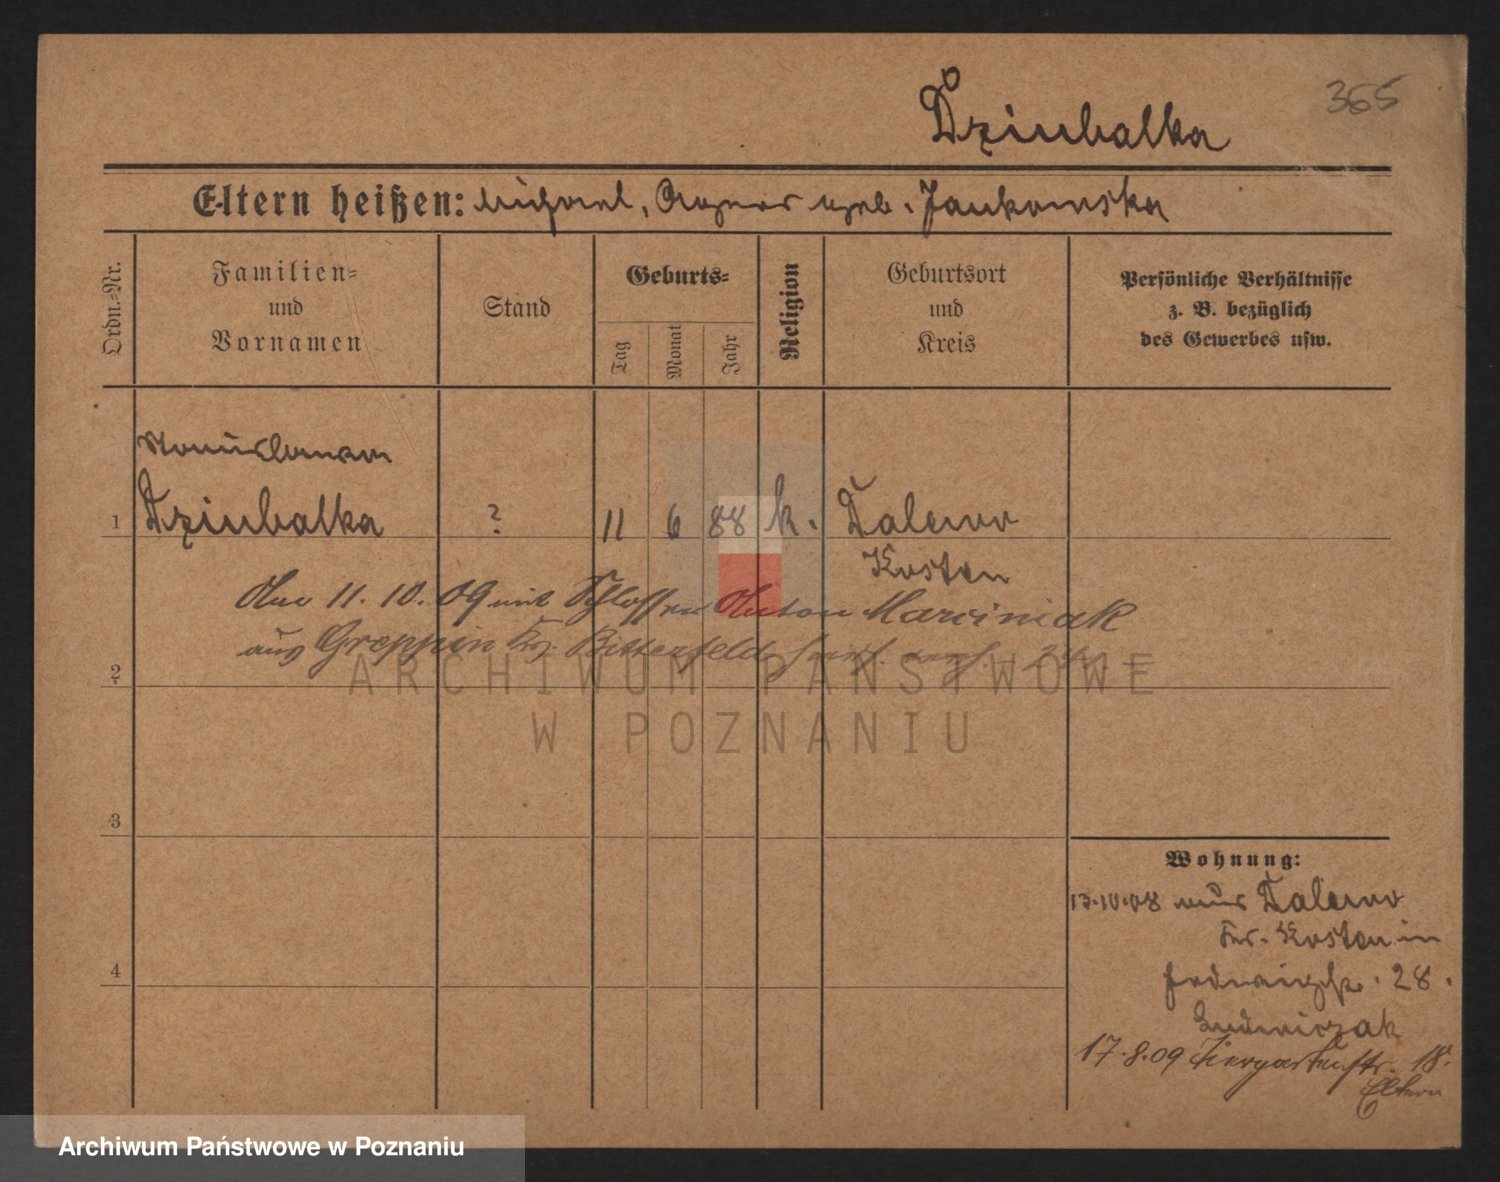 365
Dziubalka
Eltern heißen: Michael, Agnes geb. Jankowska
Ordn.-Nr.
Familien-
und
Vornamen
Stand
Geburts-
Tag
Monat
Jahr
Religion
Geburtsort
und
Kreis
Persönliche Verhältnisse
z. B. bezüglich
des Gewerbes usw.
Stanislawa
1 Dziubalka ? 11 6 88 k. Dalewo
Kosten
Am 11. 10. 09 mit Schlosser Anton Marciniak
aus Greppin Kr. Bitterfeld
2
ARCHIWUM PAŃSTWOWE
W POZNANIU
3
4
Wohnung:
13.10.08 aus Dalewo
Kr. Kosten in
28.
Ludwiczak
17.8.09 Tiergartenstr. 18.
Eltern
Archiwum Państwowe w Poznaniu